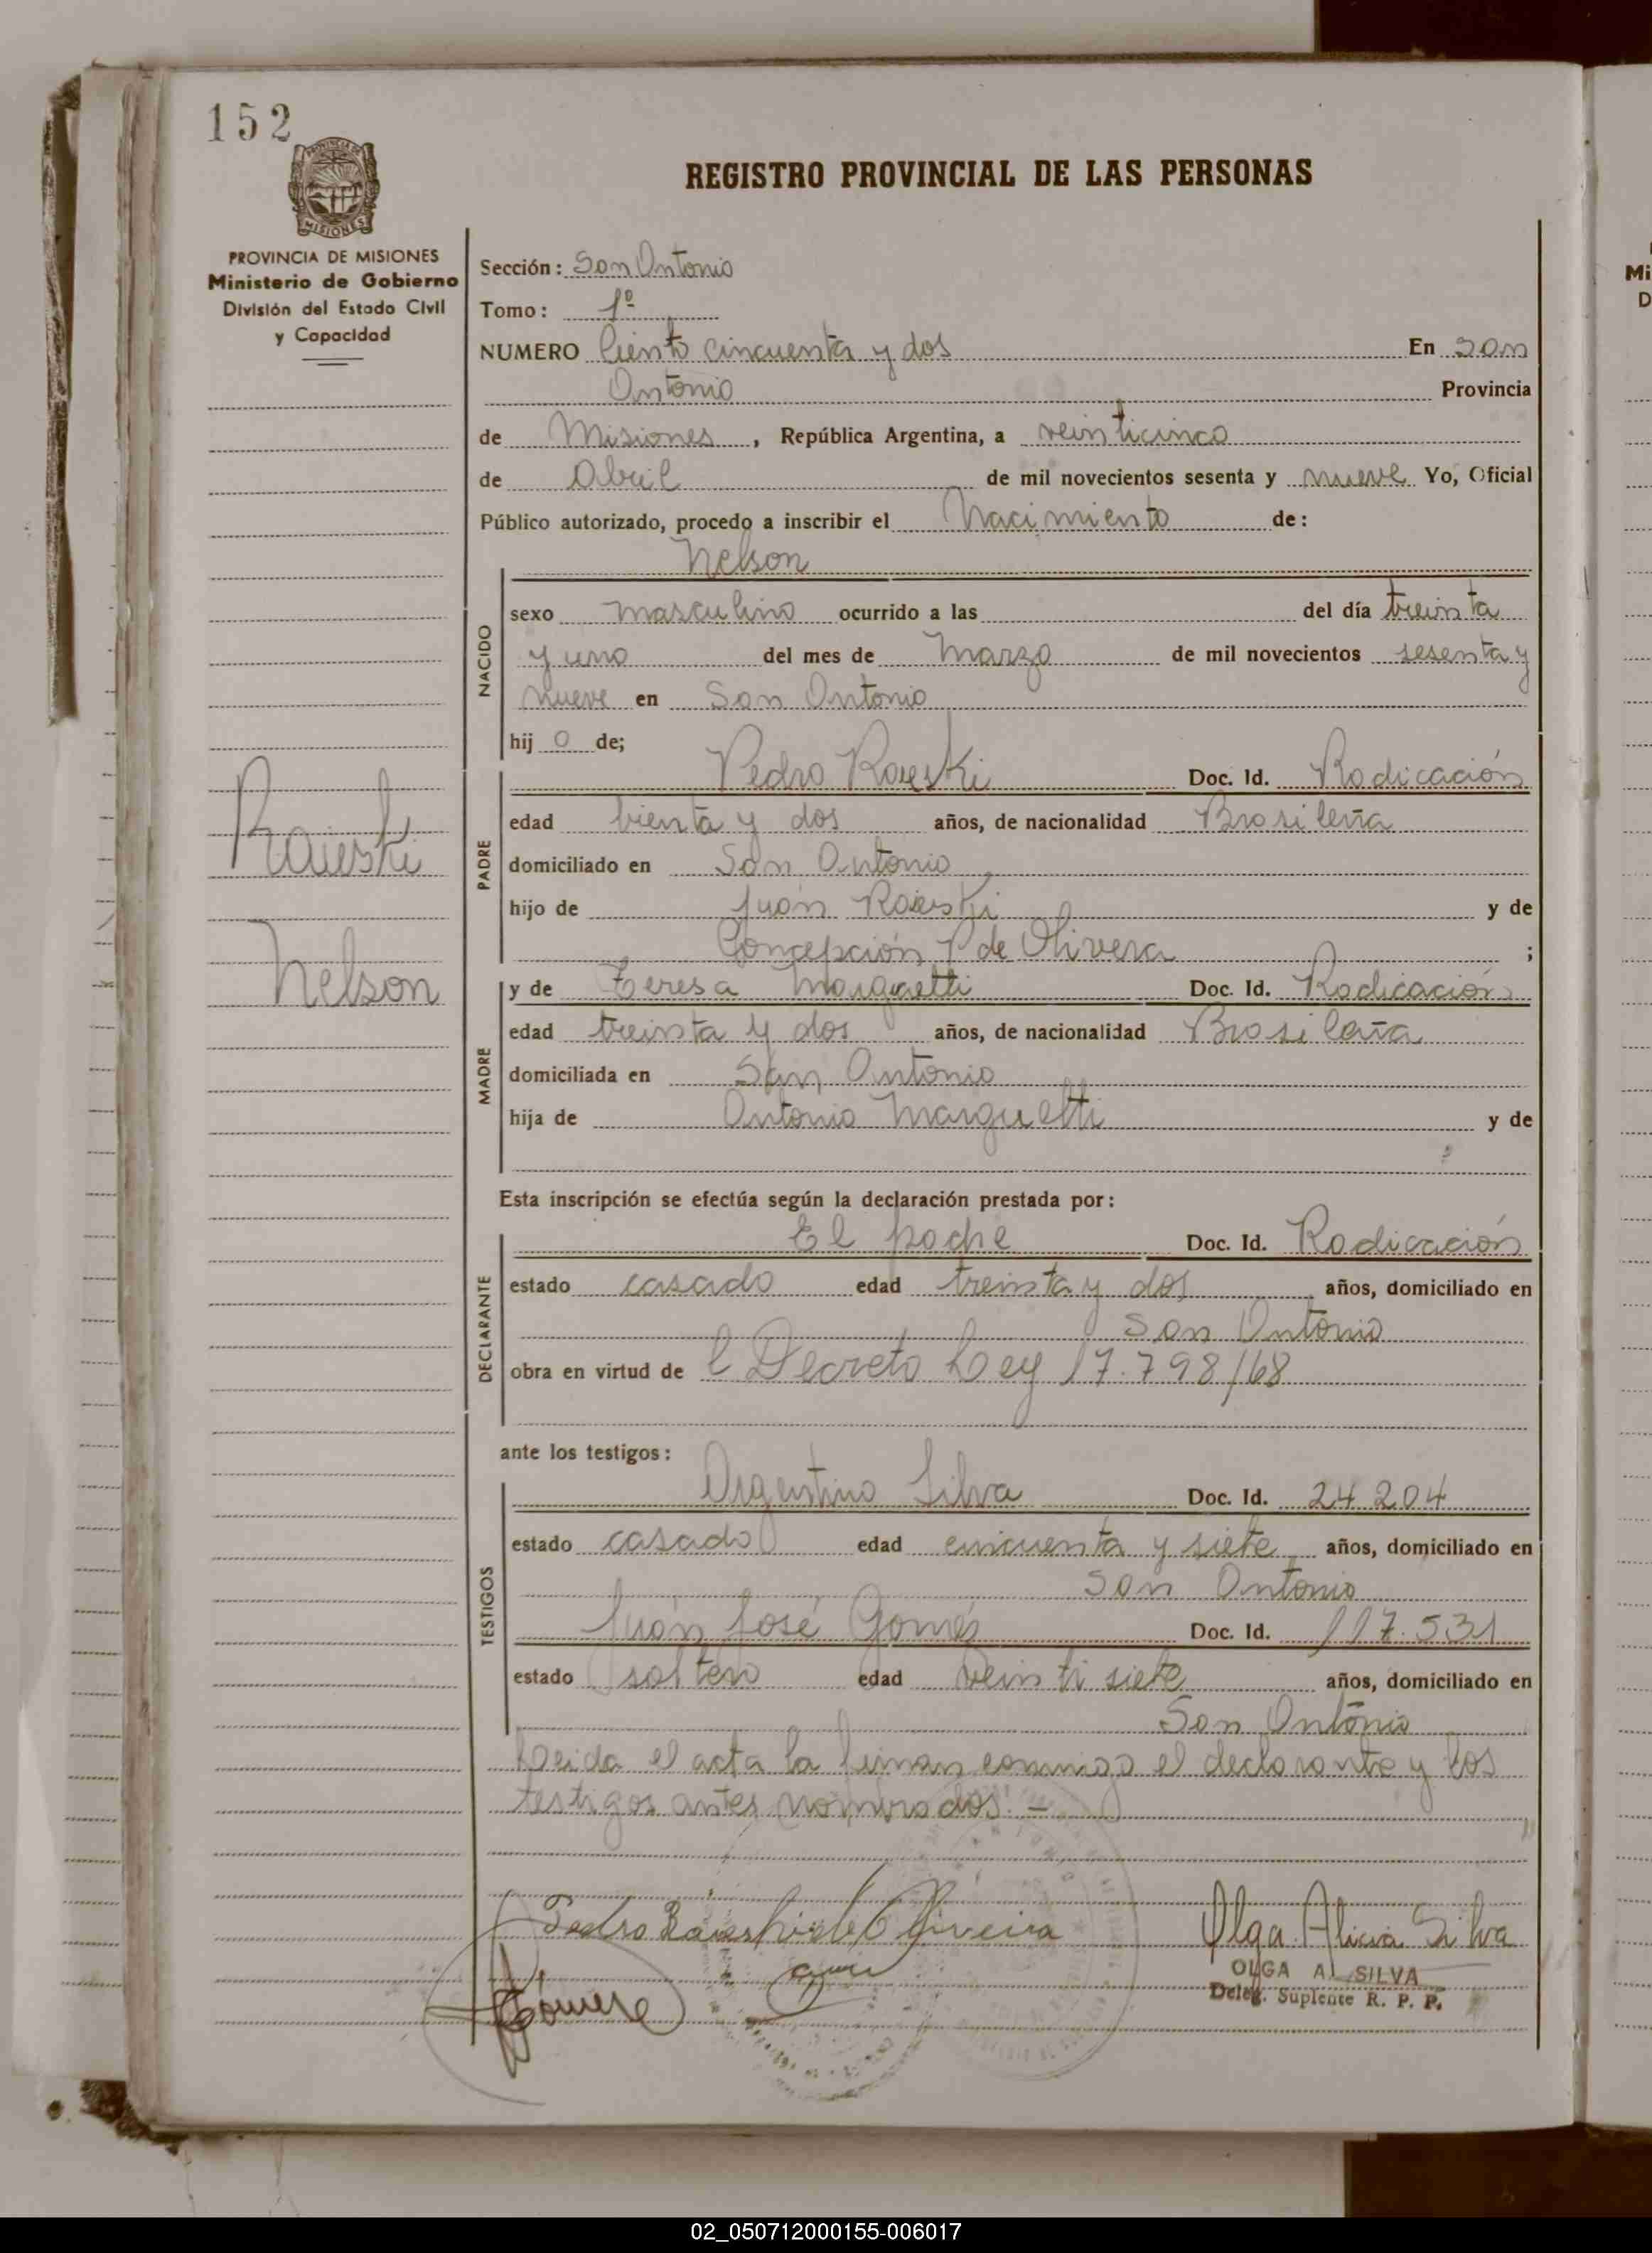 152
PROVINCIA DE MISIONES
Ministerio de Gobierno
División del Estado Civil
y Capacidad
REGISTRO PROVINCIAL DE LAS PERSONAS
Sección: San Antonio
Tomo: 1º
NUMERO Ciento cincuenta y dos En San
Antonio Provincia
de Misiones, República Argentina, a veinticinco
de Abril de mil novecientos sesenta y nueve Yo, Oficial
Público autorizado, procedo a inscribir el Nacimiento de:
Nelson
NACIDO
sexo masculino ocurrido a las del día treinta
y uno del mes de Marzo de mil novecientos sesenta y
nueve en San Antonio
hij o de;
Raieski
Nelson
PADRE
Pedro Raieski Doc. Id. Radicación
edad treinta y dos años, de nacionalidad Brasileña
domiciliado en San Antonio
hijo de Juan Raieski y de
Concepción P de Olivera ;
MADRE
y de Teresa Marguetti Doc. Id. Radicación
edad treinta y dos años, de nacionalidad Brasileña
domiciliada en San Antonio
hija de Antonio Marguetti y de
Esta inscripción se efectúa según la declaración prestada por:
DECLARANTE
El padre Doc. Id. Radicación
estado casado edad treinta y dos años, domiciliado en
San Antonio
obra en virtud de l Decreto Ley 17.798/68
ante los testigos:
TESTIGOS
Argentino Silva Doc. Id. 24.204
estado casado edad cincuenta y siete años, domiciliado en
San Antonio
Juán José Gomés Doc. Id. 117.531
estado soltero edad veinti siete años, domiciliado en
San Antonio
Leida el acta la firman conmigo el declarante y los
testigos antes nombrados. -
Pedro Raieski de Oliveira
Olga Alicia Silva
OLGA A. SILVA
Deleg. Suplente R. P. P.
Gómes
02_050712000155-006017